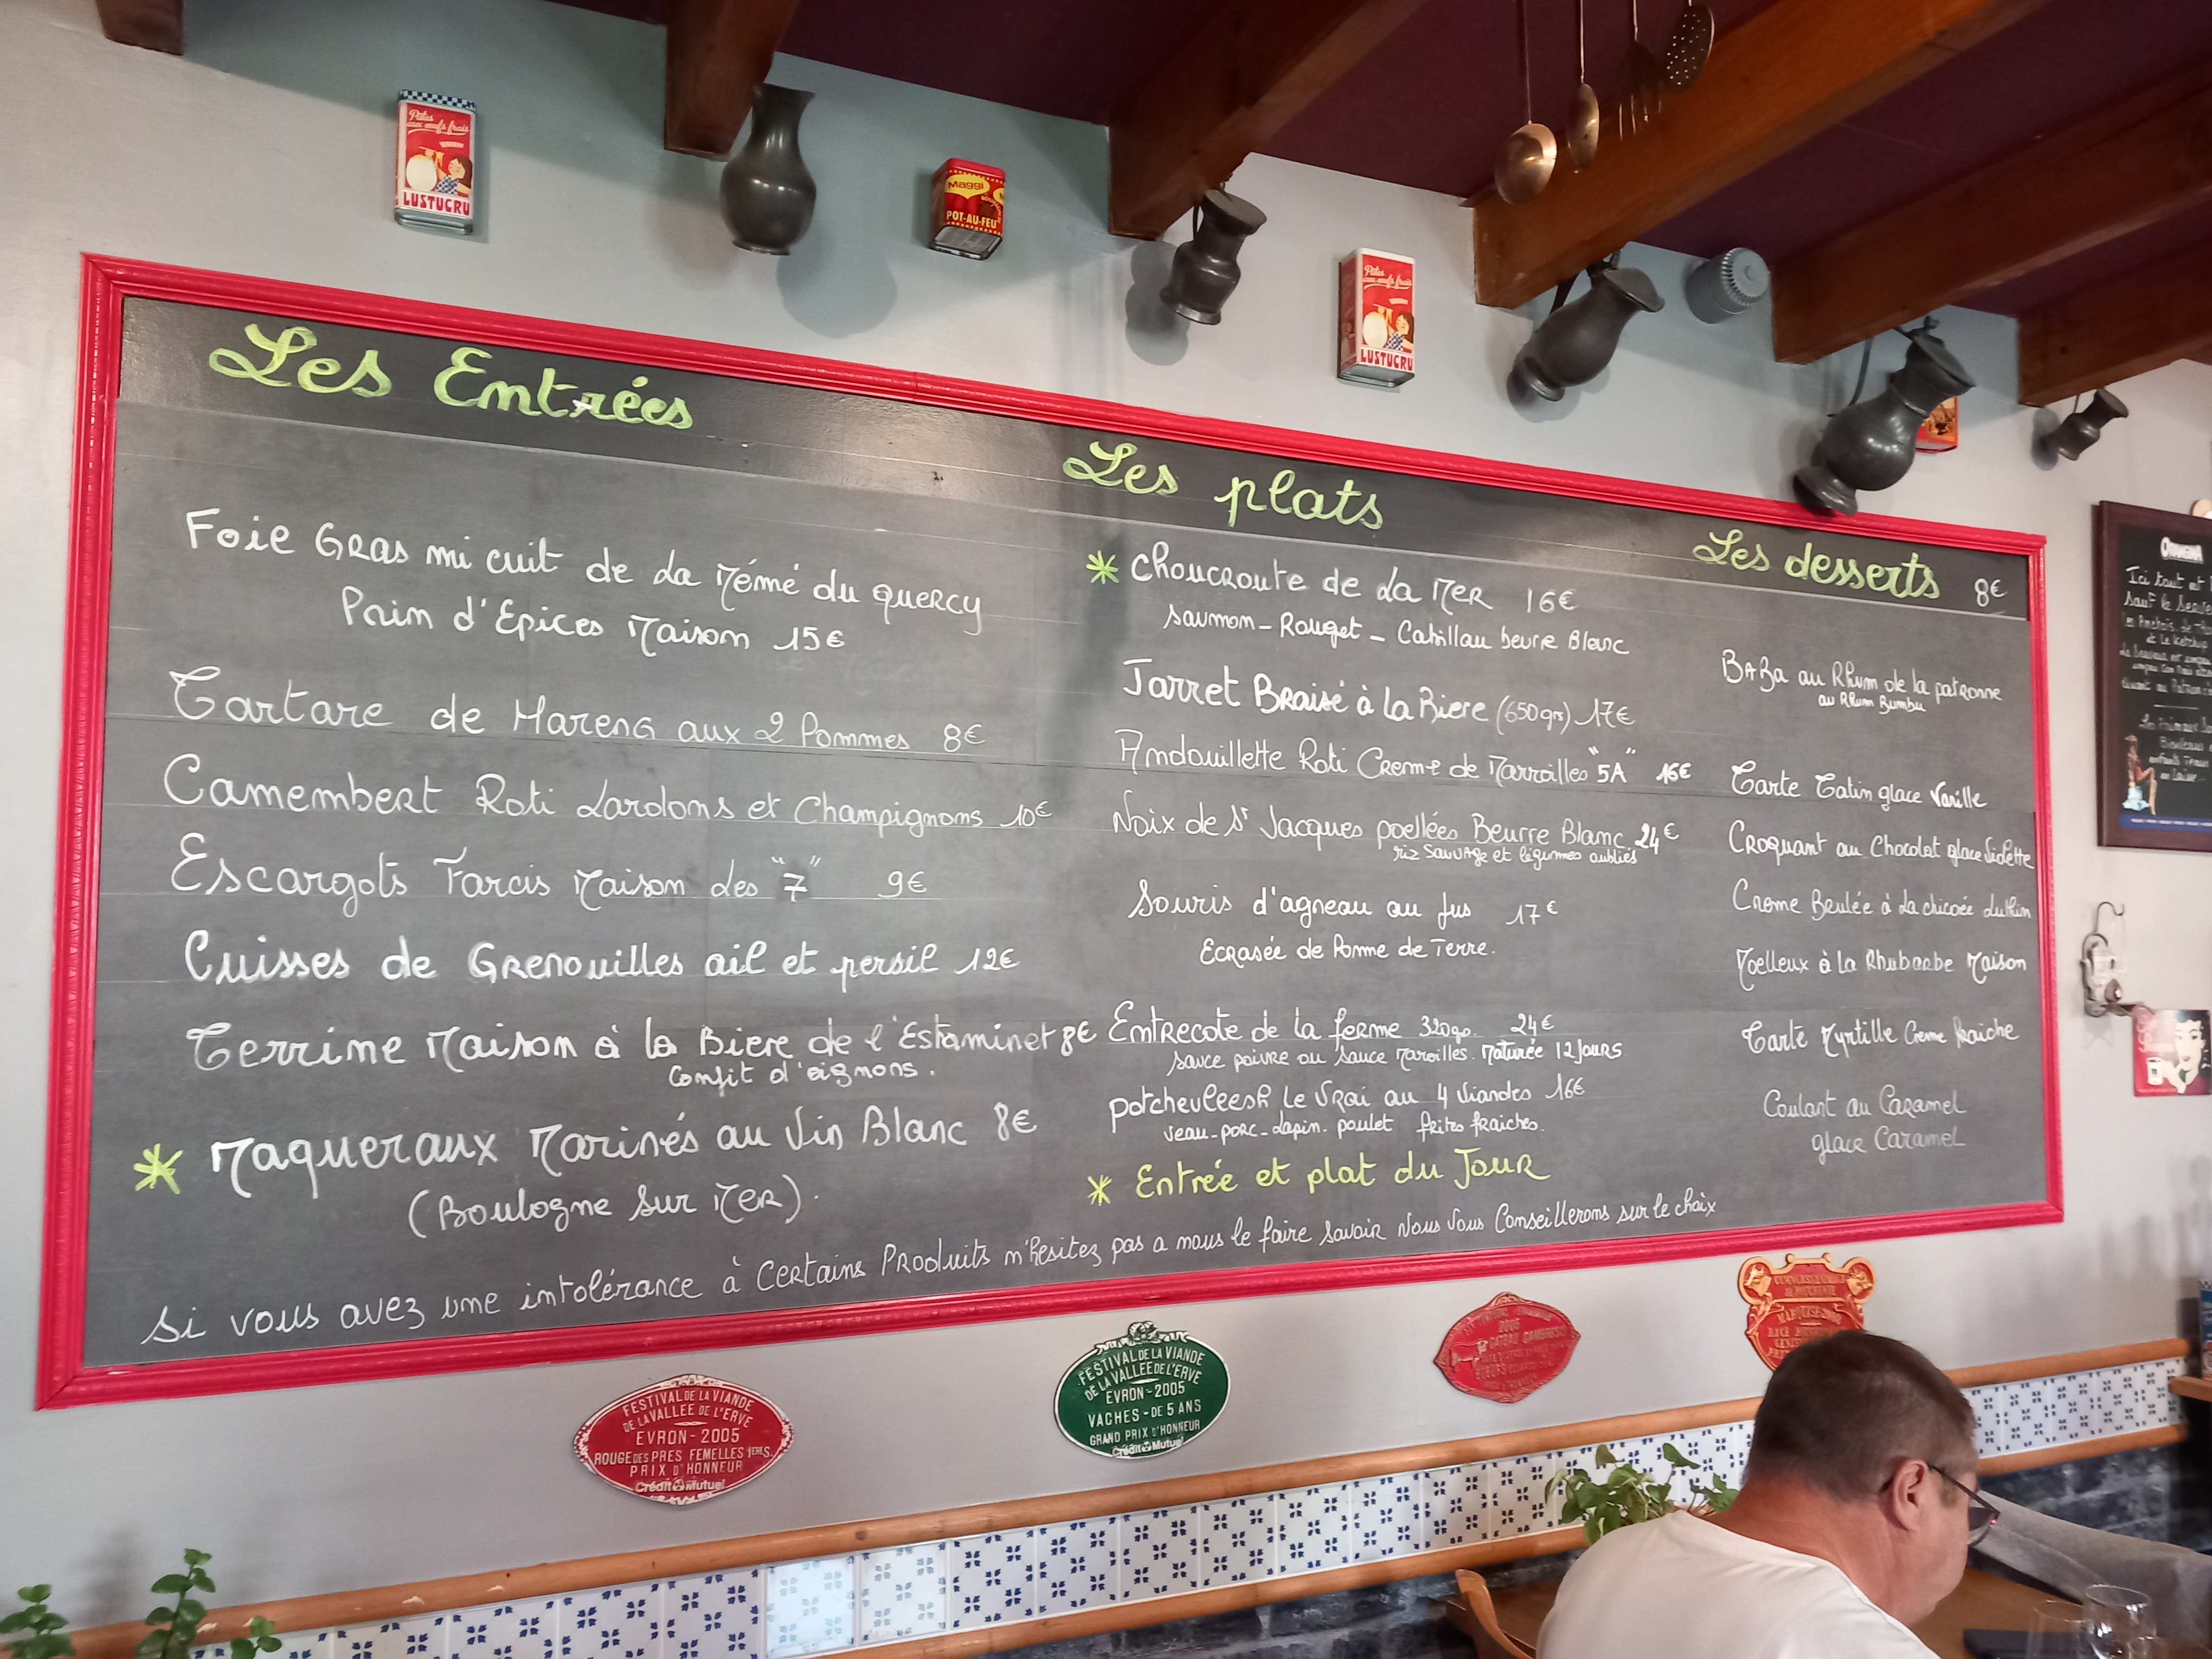 Pâtes
aux œufs frais
LUSTUCRU
Maggi
POT-AU-FEU
Pâtes
aux œufs frais
LUSTUCRU
Les Entrées
Foie Gras mi cuit de la Mémé du quercy
Pain d'Epices Maison 15€
Tartare de Hareng aux 2 Pommes 8€
Camembert Roti Lardons et Champignons 10€
Escargots Farcis Maison des "7" 9€
Cuisses de Grenouilles ail et persil 12€
Terrine Maison à la Biere de l'Estaminet 8€
Confit d'oignons.
* Maqueraux Marinés au Vin Blanc 8€
(Boulogne sur Mer).
Les plats
* Choucroute de la Mer 16€
saumon - Rouget - Cabillau beure Blanc
Jarret Braisé à la Biere (650grs) 17€
Andouillette Roti Creme de Marroilles "5A" 16€
Noix de St Jacques poellées Beurre Blanc 24€
riz sauvage et légumes oubliés
Souris d'agneau au jus 17€
Ecrasée de Pomme de Terre.
Entrecote de la ferme 320gr. 24€
sauce poivre ou sauce Maroilles. Maturée 12 Jours
Potchevleesh Le Vrai au 4 Viandes 16€
veau - porc - Lapin - poulet frites fraiches.
* Entrée et plat du Jour
Les desserts 8€
BABa au Rhum de la patronne
au Rhum Bumbu
Tarte Tatin glace Vanille
Croquant au Chocolat glace Violette
Creme Brulée à la chicoée
Moelleux à la Rhubarbe Maison
Tarte Myrtille Creme fraiche
Coulant au Caramel
glace Caramel
Si vous avez une intolérance à Certains Produits n'hesitez pas a nous le faire savoir Nous Vous Conseillerons sur le choix
ORANGINA
Ici tout est
Sauf le
et Le Ketchup
FESTIVAL DE LA VIANDE
DE LA VALLEE DE L'ERVE
EVRON - 2005
ROUGE DES PRES FEMELLES 1ERS S.
PRIX D'HONNEUR
Crédit Mutuel
FESTIVAL DE LA VIANDE
DE LA VALLEE DE L'ERVE
EVRON - 2005
VACHES - DE 5 ANS
GRAND PRIX D'HONNEUR
Crédit Mutuel